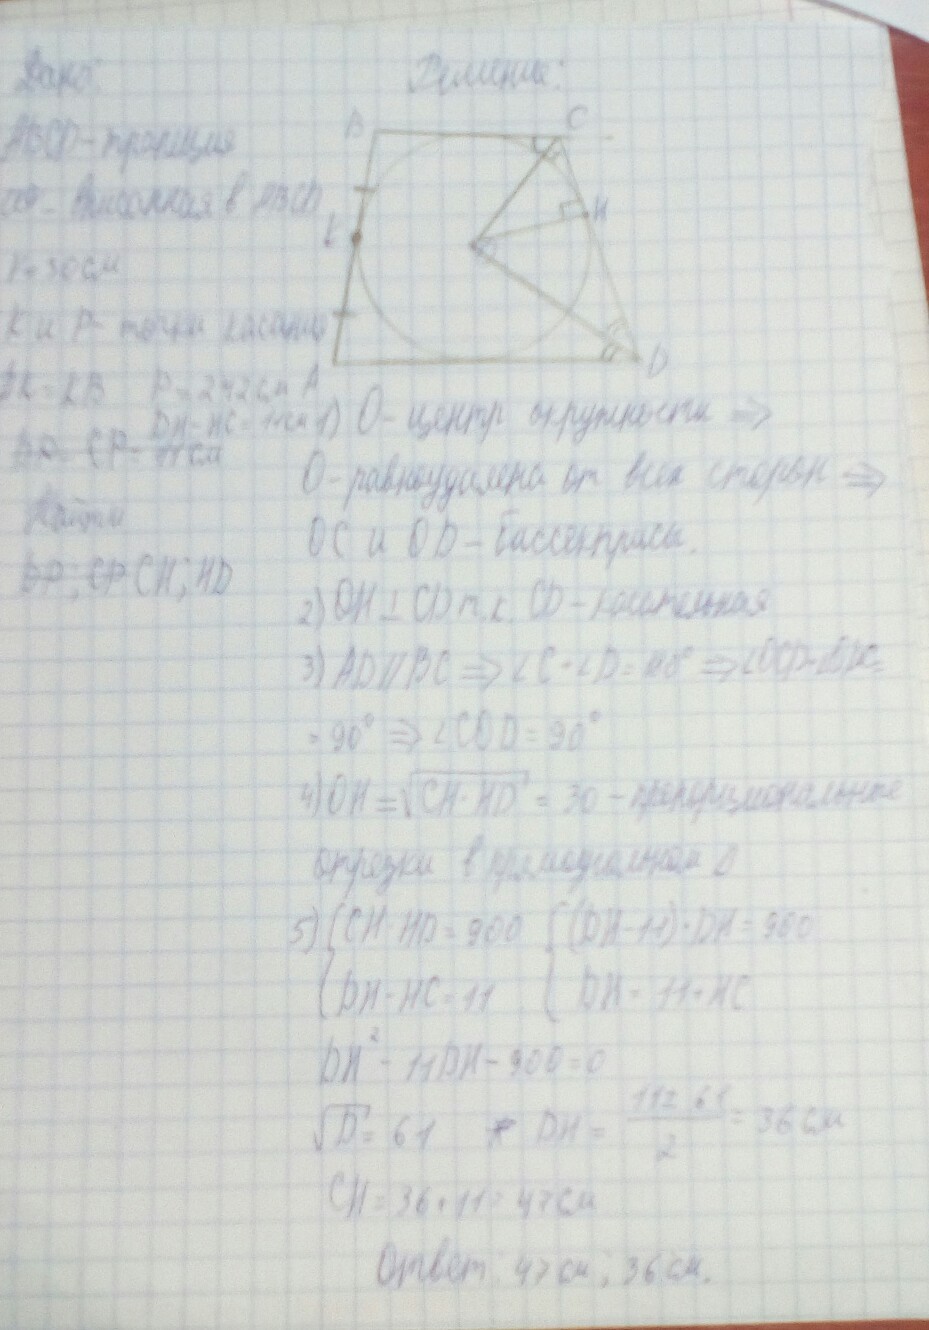 Дано:
Решение:
ABCD - трапеция
вписанная в ABCD
r = 30 см
K и P - точки касания
AK = KB P = 242 см
DH - HC = 11 см
CP = 11 см
Найти
DP; CP CH; HD
B C
K H
A D
1) O - центр окружности ⇒
O - равноудалена от всех сторон ⇒
OC и OD - биссектрисы.
2) OH ⊥ CD т.к. CD - касательная
3) AD || BC ⇒ ∠C + ∠D = 180° ⇒
= 90° ⇒ ∠COD = 90°
4) OH = √CH·HD = 30 - пропорциональные
отрезки в прямоугольном Δ
5) { CH·HD = 900 { (DH-11)·DH = 900
{ DH - HC = 11 { DH = 11 + HC
DH² - 11DH - 900 = 0
√D = 61 DH = 11 ± 61 / 2 = 36 см
CH = 36 + 11 = 47 см
Ответ: 47 см; 36 см.